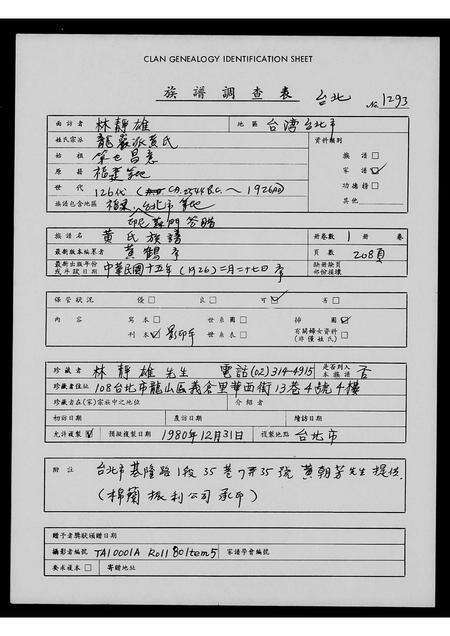 CLAN GENEALOGY IDENTIFICATION SHEET
族譜調查表 台北 No 1293
面訪者 林靜雄 地區 台湾台北市
姓氏宗派 龍巖派黃氏 資料類別
始祖 昌意 族譜 □
原縣 福建等地 家譜 ☑
世代 126代 (CA 2544 B.C. ~ 1926AD) 功德榜 □
族譜包含地區 福建,台北市等地 其他
族譜名 黃氏族譜 冊卷數 1 冊 卷
最新版本編纂者 黃鶴亭 頁數 208頁
最新出版年份或手鈔日期 中華民國十五年 (1926) 二月二十七日 缺冊缺頁部份損壞
保管狀況 優 □ 良 □ 可 ☑ 劣 □
內容 寫本 □ 世系圖 □ 插圖 ☑
刊本 ☑ 影印 世系表 □ 有關婦女資料(非僅姓氏) □
珍藏者 林靜雄先生 電話(02)314-4915 是否列入本族譜 否
珍藏者住址 108台北市龍山區義倉里華西街13巷4號4樓
珍藏者在(家)宗社中之地位 介紹者
初訪日期 度訪日期 續訪日期
允許複製 ☑ 預擬複製日期 1980年12月31日 複製地點 台北市
附註 台北市基隆路1段35巷7弄35號 黃朝芳先生提供
(棉蘭振利公司承印)
贈予者獎狀頒贈日期
攝影者編號 TA10001A Roll 80 Item 5 家譜學會編號
要求複本 □ 寄贈地址